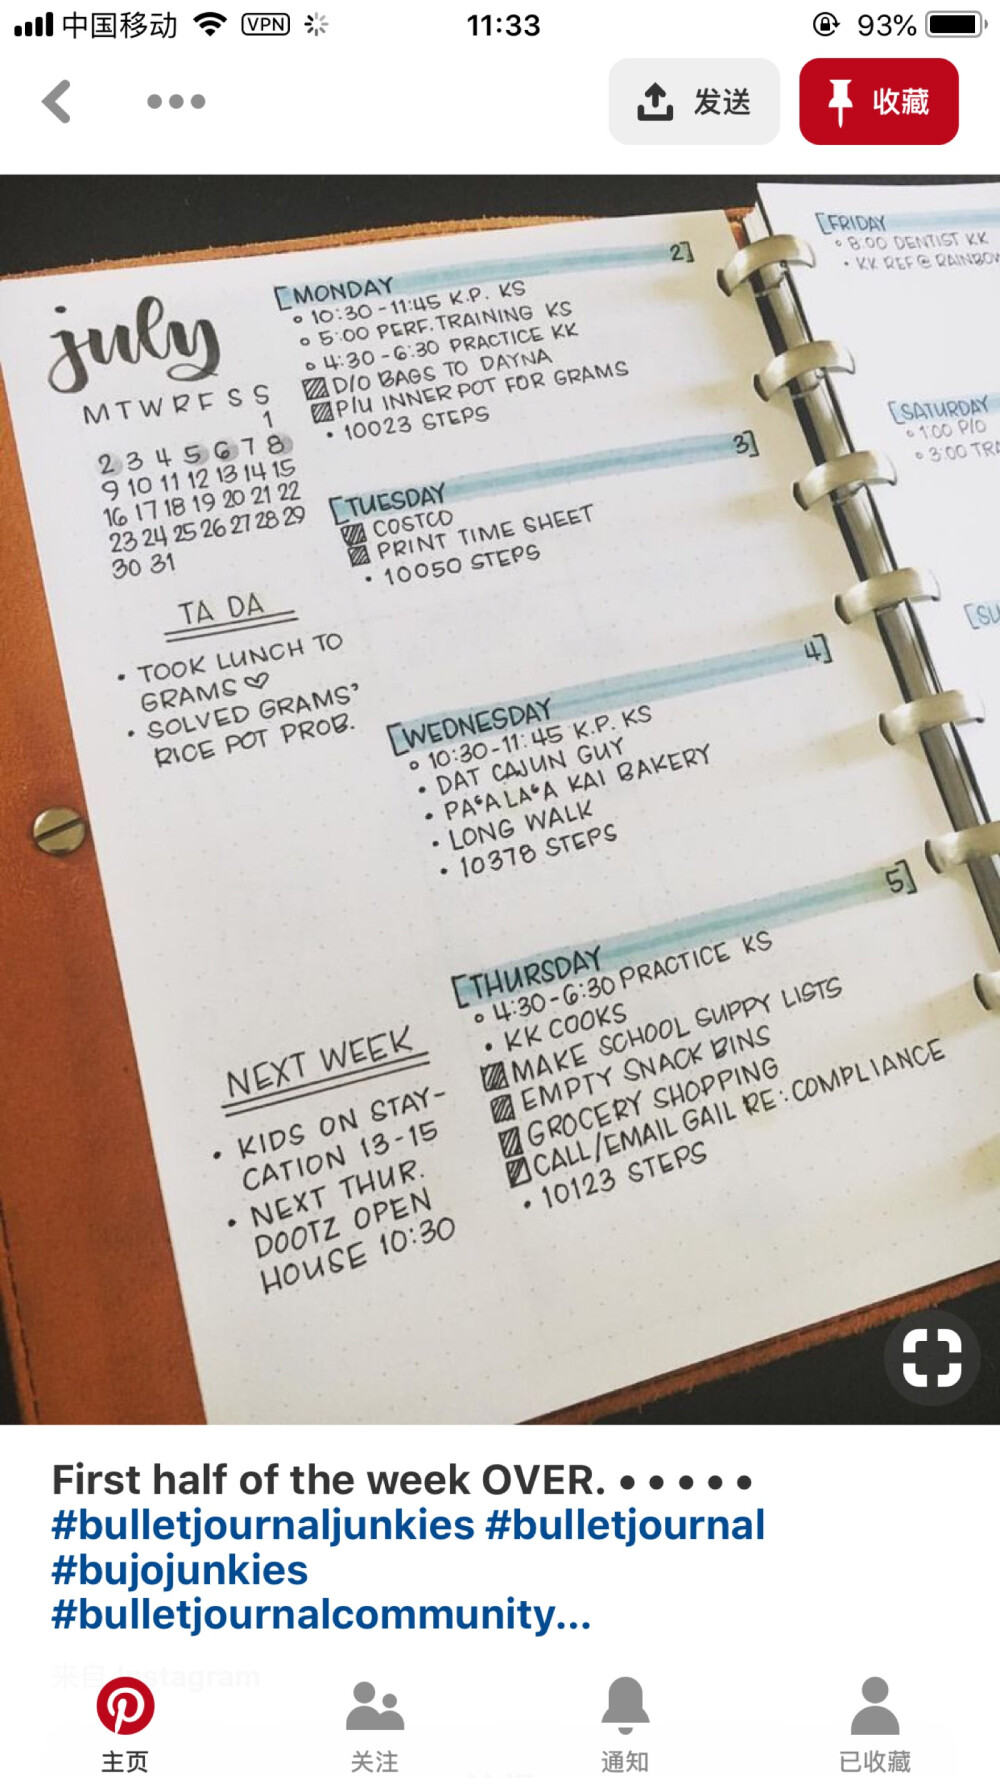 中国移动 VPN 11:33 93%
发送
收藏
july
M T W R F S S
1
2 3 4 5 6 7 8
9 10 11 12 13 14 15
16 17 18 19 20 21 22
23 24 25 26 27 28 29
30 31
TA DA
• TOOK LUNCH TO
GRAMS ♡
• SOLVED GRAMS'
RICE POT PROB.
NEXT WEEK
• KIDS ON STAY-
CATION 13-15
• NEXT THUR.
DOOTZ OPEN
HOUSE 10:30
[MONDAY 2]
° 10:30-11:45 K.P. KS
° 5:00 PERF. TRAINING KS
° 4:30-6:30 PRACTICE KK
D/O BAGS TO DAYNA
P/U INNER POT FOR GRAMS
• 10023 STEPS
[TUESDAY 3]
COSTCO
PRINT TIME SHEET
• 10050 STEPS
[WEDNESDAY 4]
° 10:30-11:45 K.P. KS
• DAT CAJUN GUY
• PA'ALA'A KAI BAKERY
• LONG WALK
• 10378 STEPS
[THURSDAY 5]
° 4:30-6:30 PRACTICE KS
• KK COOKS
MAKE SCHOOL SUPPY LISTS
EMPTY SNACK BINS
GROCERY SHOPPING
CALL/EMAIL GAIL RE: COMPLIANCE
• 10123 STEPS
[FRIDAY
° 8:00 DENTIST KK
• KK REF @ RAINBOW
[SATURDAY
° 1:00 P/O
° 3:00 TRA
[SU
First half of the week OVER. • • • • •
#bulletjournaljunkies #bulletjournal
#bujojunkies
#bulletjournalcommunity...
主页
关注
通知
已收藏